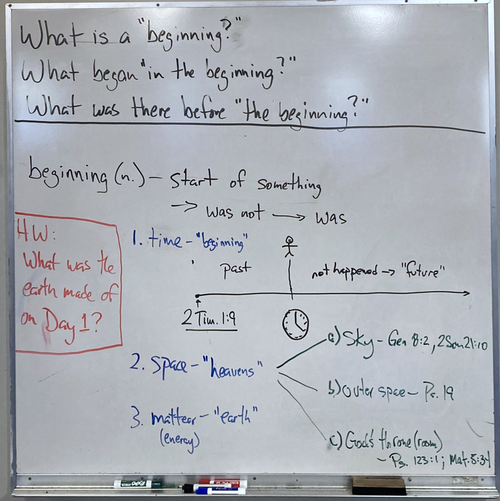 What is a "beginning?"
What began "in the beginning?"
What was there before "the beginning?"
beginning (n.) – start of something
→ was not → was
HW:
What was the
earth made of
on Day 1?
1. time – "beginning"
past
not happened → "future"
2 Tim. 1:9
2. space – "heavens"
a) Sky – Gen 8:2, 2Sam 21:10
b) outer space – Ps. 19
c) God's throne (room)
– Ps. 123:1; Mat. 5:34
3. matter – "earth"
(energy)